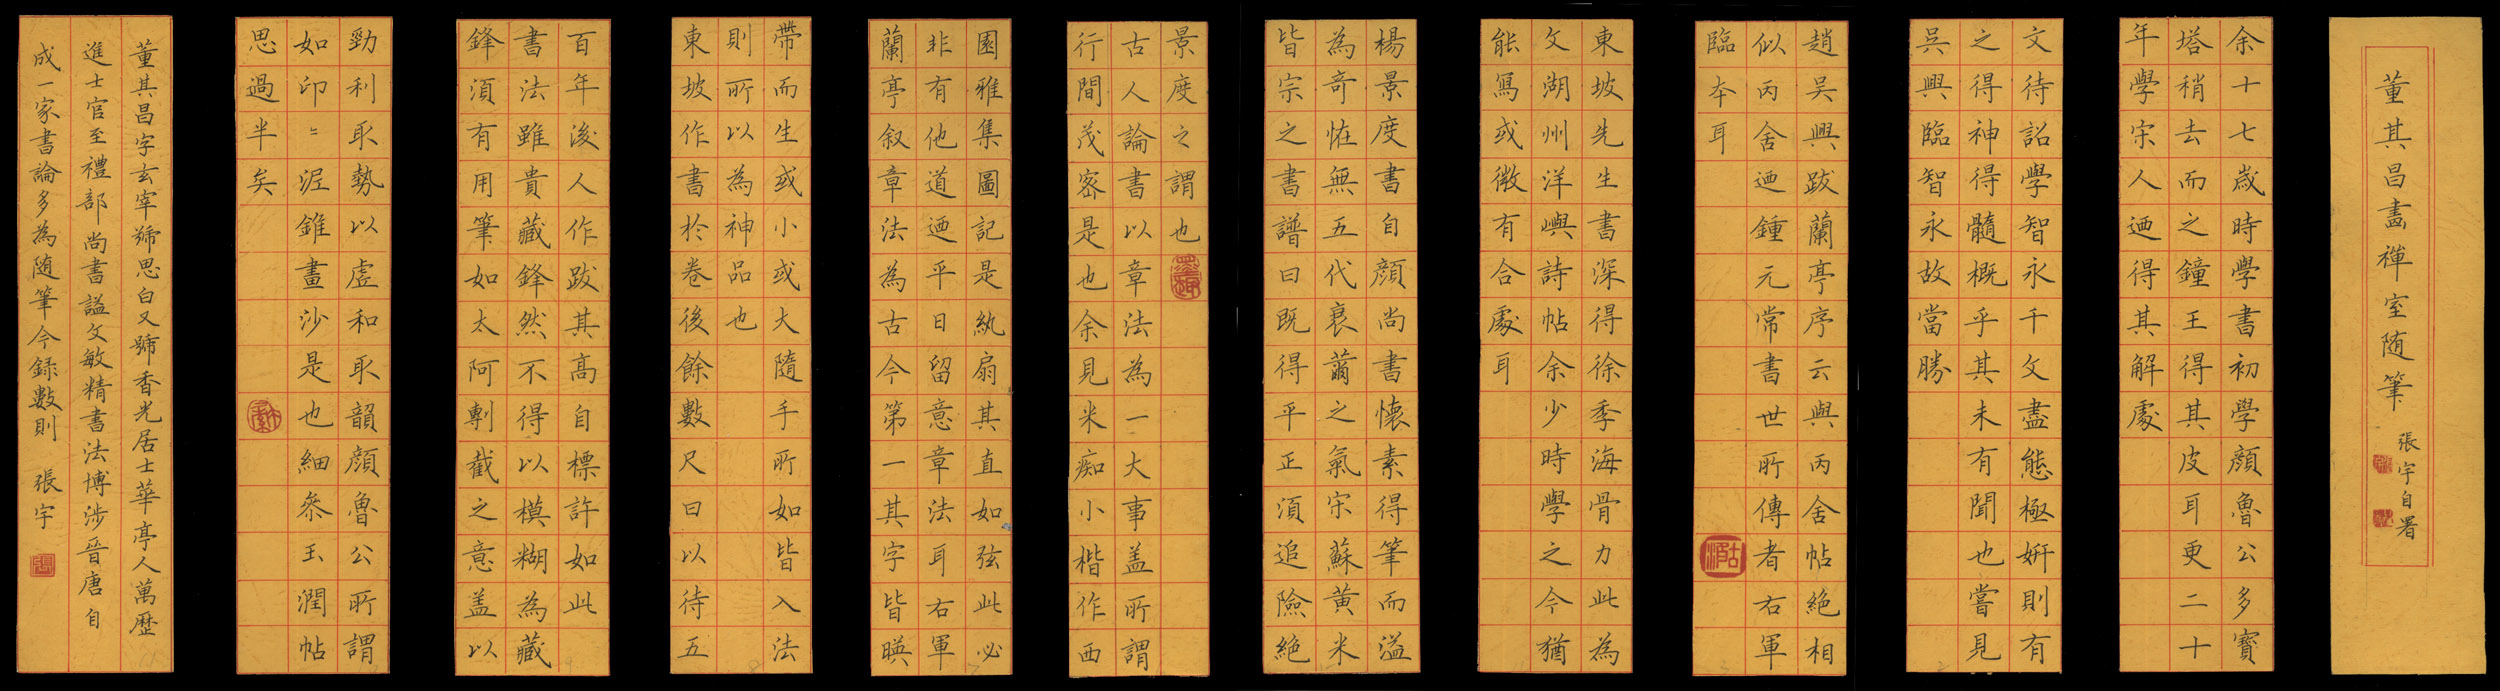 董其昌畫禅室随筆
張宇自署
余十七歳時學書初學顔魯公多寶
塔稍去而之鐘王得其皮耳更二十
年學宋人迺得其解處
文待詔學智永千文盡態極妍則有
之得神得髓概乎其未有聞也嘗見
吳興臨智永故當勝
趙吳興跋蘭亭序云與丙舍帖絶相
似丙舍迺鍾元常書世所傳者右軍
臨本耳
東坡先生書深得徐季海骨力此為
文湖州洋嶼詩帖余少時學之今猶
能寫或微有合處耳
楊景度書自顔尚書懷素得筆而溢
為奇怪無五代衰薾之氣宋蘇黄米
皆宗之書譜曰既得平正須追險絶
景度之謂也
古人論書以章法為一大事盖所謂
行間茂密是也余見米痴小楷作西
園雅集圖記是紈扇其直如弦此必
非有他道迺平日留意章法耳右軍
蘭亭叙章法為古今第一其字皆暎
帶而生或小或大隨手所如皆入法
則所以為神品也
東坡作書於卷後餘數尺曰以待五
百年後人作跋其高自標許如此
書法雖貴藏鋒然不得以模糊為藏
鋒須有用筆如太阿剸截之意盖以
勁利取勢以虚和取韻顔魯公所謂
如印印泥錐畫沙是也細參玉潤帖
思過半矣
董其昌字玄宰號思白又號香光居士華亭人萬歷
進士官至禮部尚書謚文敏精書法博涉晉唐自
成一家書論多為随筆今録數則 張宇